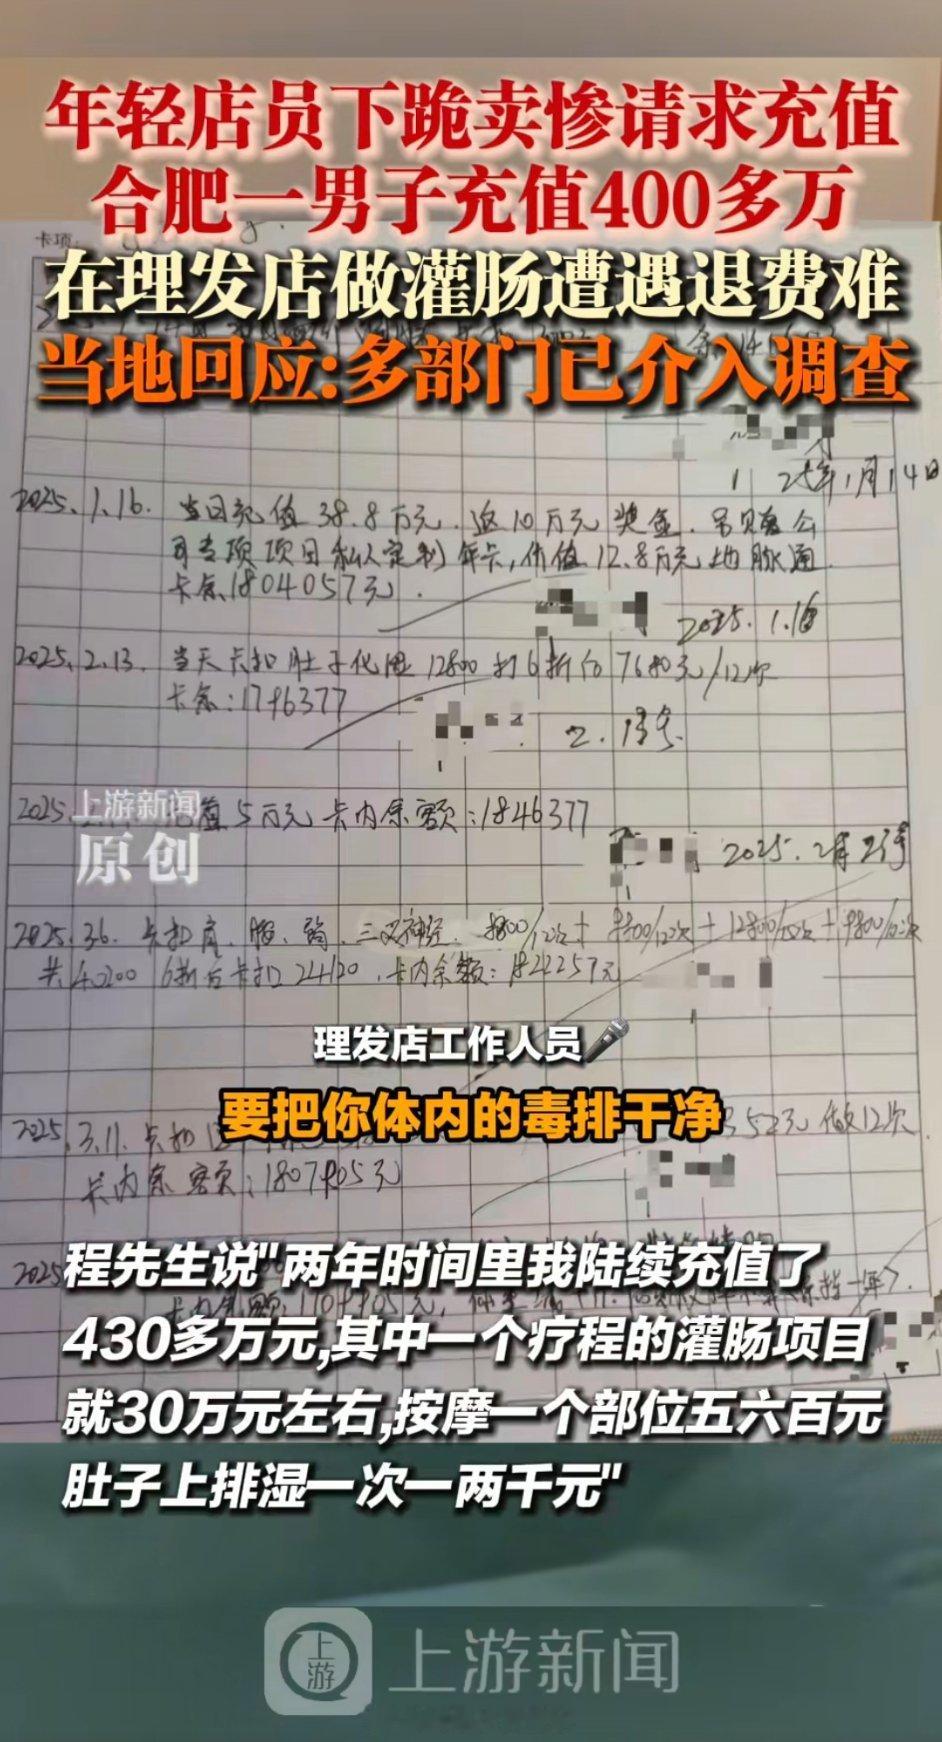 年轻店员下跪卖惨请求充值
合肥一男子充值400多万
卡项:
在理发店做灌肠遭遇退费难
当地回应:多部门已介入调查
25年1月14日
2025.1.16. 当日充值38.8万元.返10万元奖金.另赠公
司专项项目私人定制年卡,价值12.8万元地脉通.
卡余1804057元.
2025.1.16
2025.2.13. 当天卡扣肚子化湿12800打6折后7680元/12次
卡余:1796377
2.13号.
2025.
值5万元卡内余额:1846377
上游新闻
原创
2025.2月2
2025.3.6. 卡扣肩、腰、胸、三叉神经.8800/12次+8800/12次+12800/12次+9800/12次
共40200 6折后卡扣24120.卡内余额:1822257元
理发店工作人员
要把你体内的毒排干净
2025.3.11.卡扣
做12次
卡内余额:1807905元
2025
程先生说"两年时间里我陆续充值了
430多万元,其中一个疗程的灌肠项目
就30万元左右,按摩一个部位五六百元
肚子上排湿一次一两千元"
上游
上游新闻